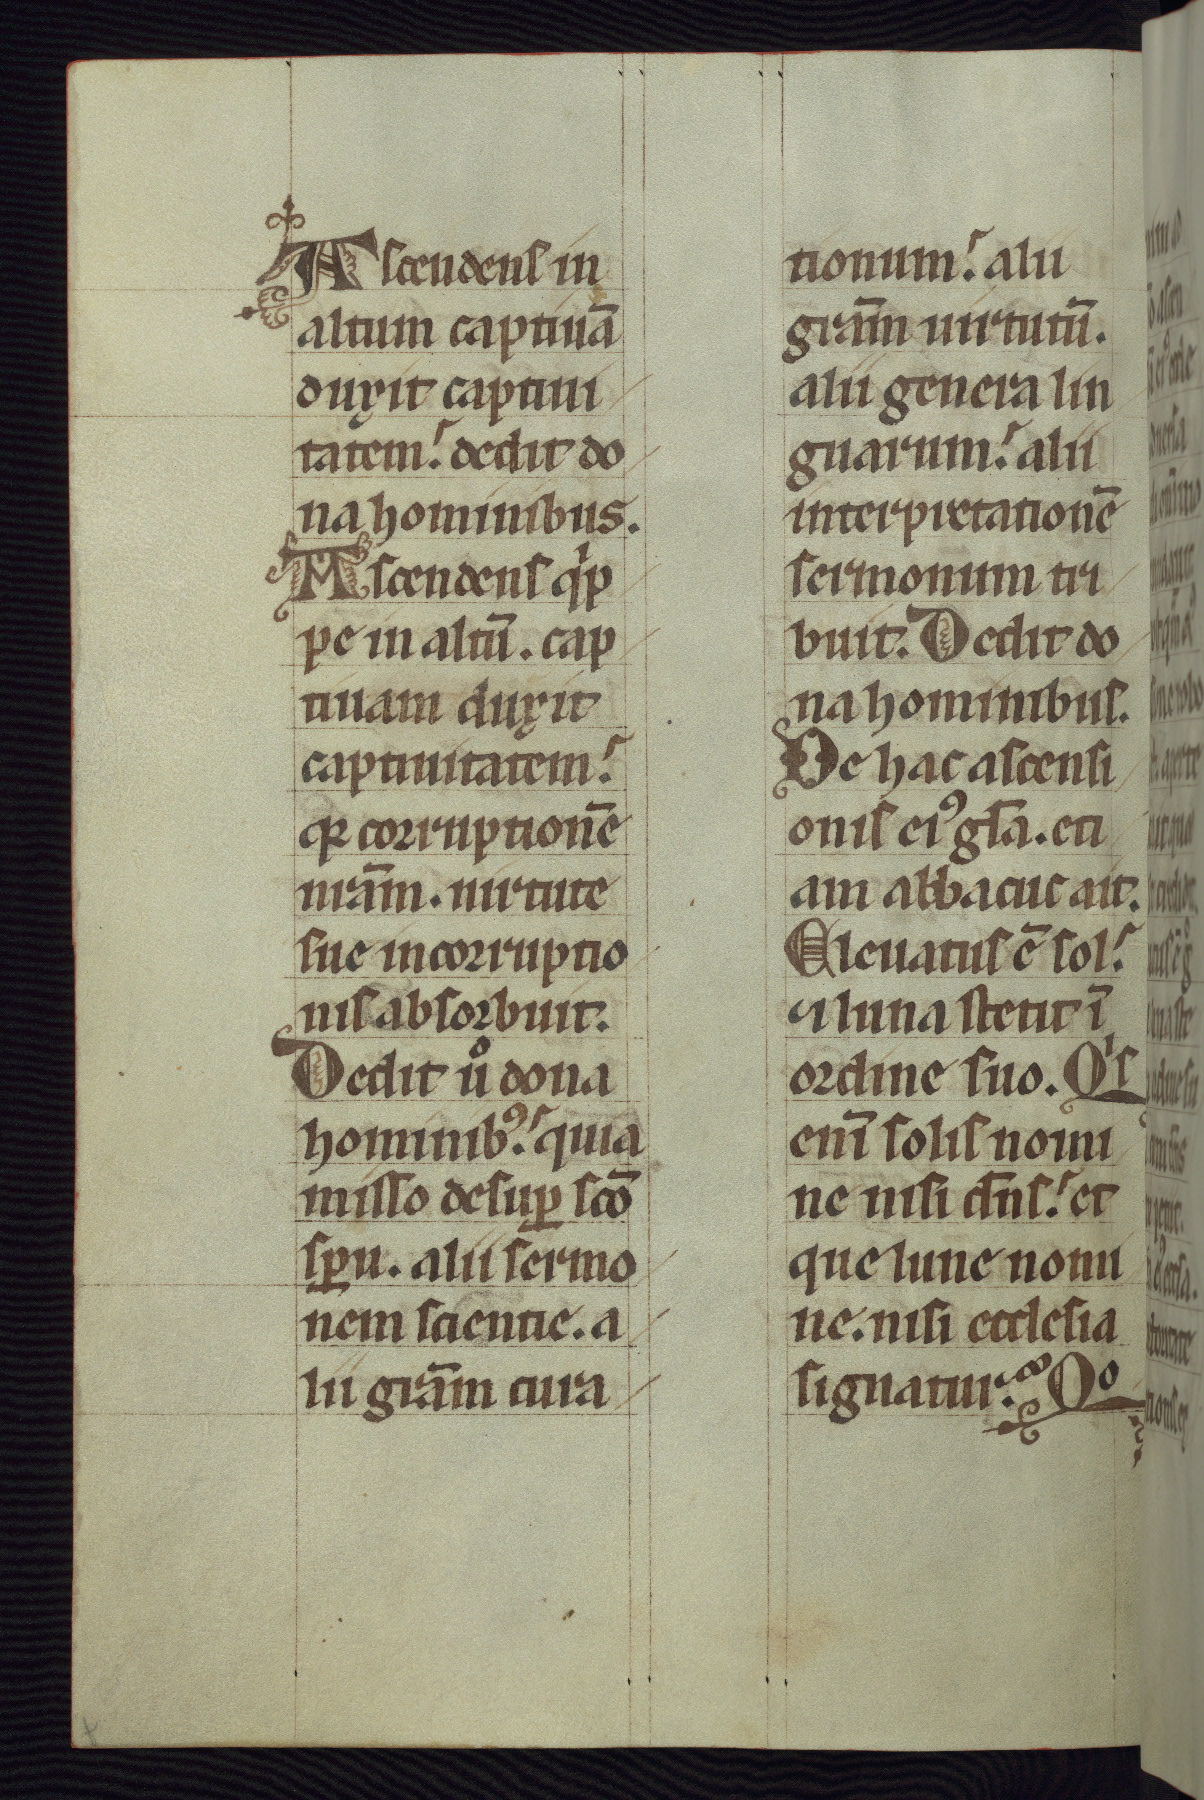 Ascendens in
altum captiuā
duxit captiui
tatem: dedit do
na hominibus.
Ascendens qⁱp
pe in altū. cap
tiuam duxit
captiuitatem:
qꝛ corruptionē
nrām. uirtute
sue incorruptio
nis absorbuit.
Dedit uͦ dona
hominibꝰ: quia
misso desuꝑ scō
sꝑu. alii sermo
nem scientie. a
lii grām cura
tionum: alii
grām uirtutū.
alii genera lin
guarum: alii
interpretationē
sermonum tri
buit. Dedit do
na hominibus.
De hac ascensi
onis eiꝰ gl̄a. eti
am abbacuc ait.
Eleuatus ē sol:
⁊ luna stetit ī
ordine suo. Qⁱs
enī solis nomi
ne nisi dn̄s: et
que lune nomi
ne. nisi ecclesia
signatur: Qo